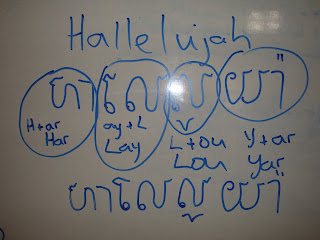 Hallelujah
ហាលេលូយ៉ា
H+ar ay+L L+ou Y+ar
Har Lay Lou Yar
ហាលេលូយ៉ា